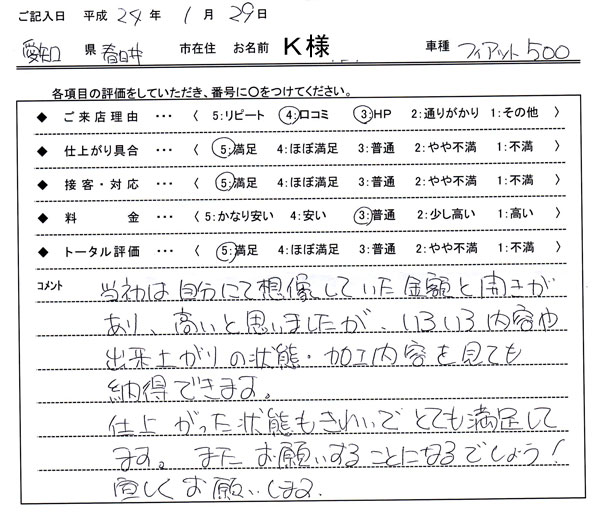 ご記入日 平成 24 年 1 月 29 日
愛知 県 春日井 市在住 お名前 K様 車種 フィアット500
各項目の評価をしていただき、番号に○をつけてください。
◆ ご来店理由 ・・・ 〈 5:リピート 4:口コミ 3:HP 2:通りがかり 1:その他 〉
◆ 仕上がり具合 ・・・ 〈 5:満足 4:ほぼ満足 3:普通 2:やや不満 1:不満 〉
◆ 接客・対応 ・・・ 〈 5:満足 4:ほぼ満足 3:普通 2:やや不満 1:不満 〉
◆ 料金 ・・・ 〈 5:かなり安い 4:安い 3:普通 2:少し高い 1:高い 〉
◆ トータル評価 ・・・ 〈 5:満足 4:ほぼ満足 3:普通 2:やや不満 1:不満 〉
コメント 当初は自分にて想像していた金額と開きが
あり、高いと思いましたが、いろいろ内容や
出来上がりの状態・加工内容を見ても
納得できます。
仕上がった状態もきれいでとても満足して
ます。またお願いすることになるでしょう!
宜しくお願いします.